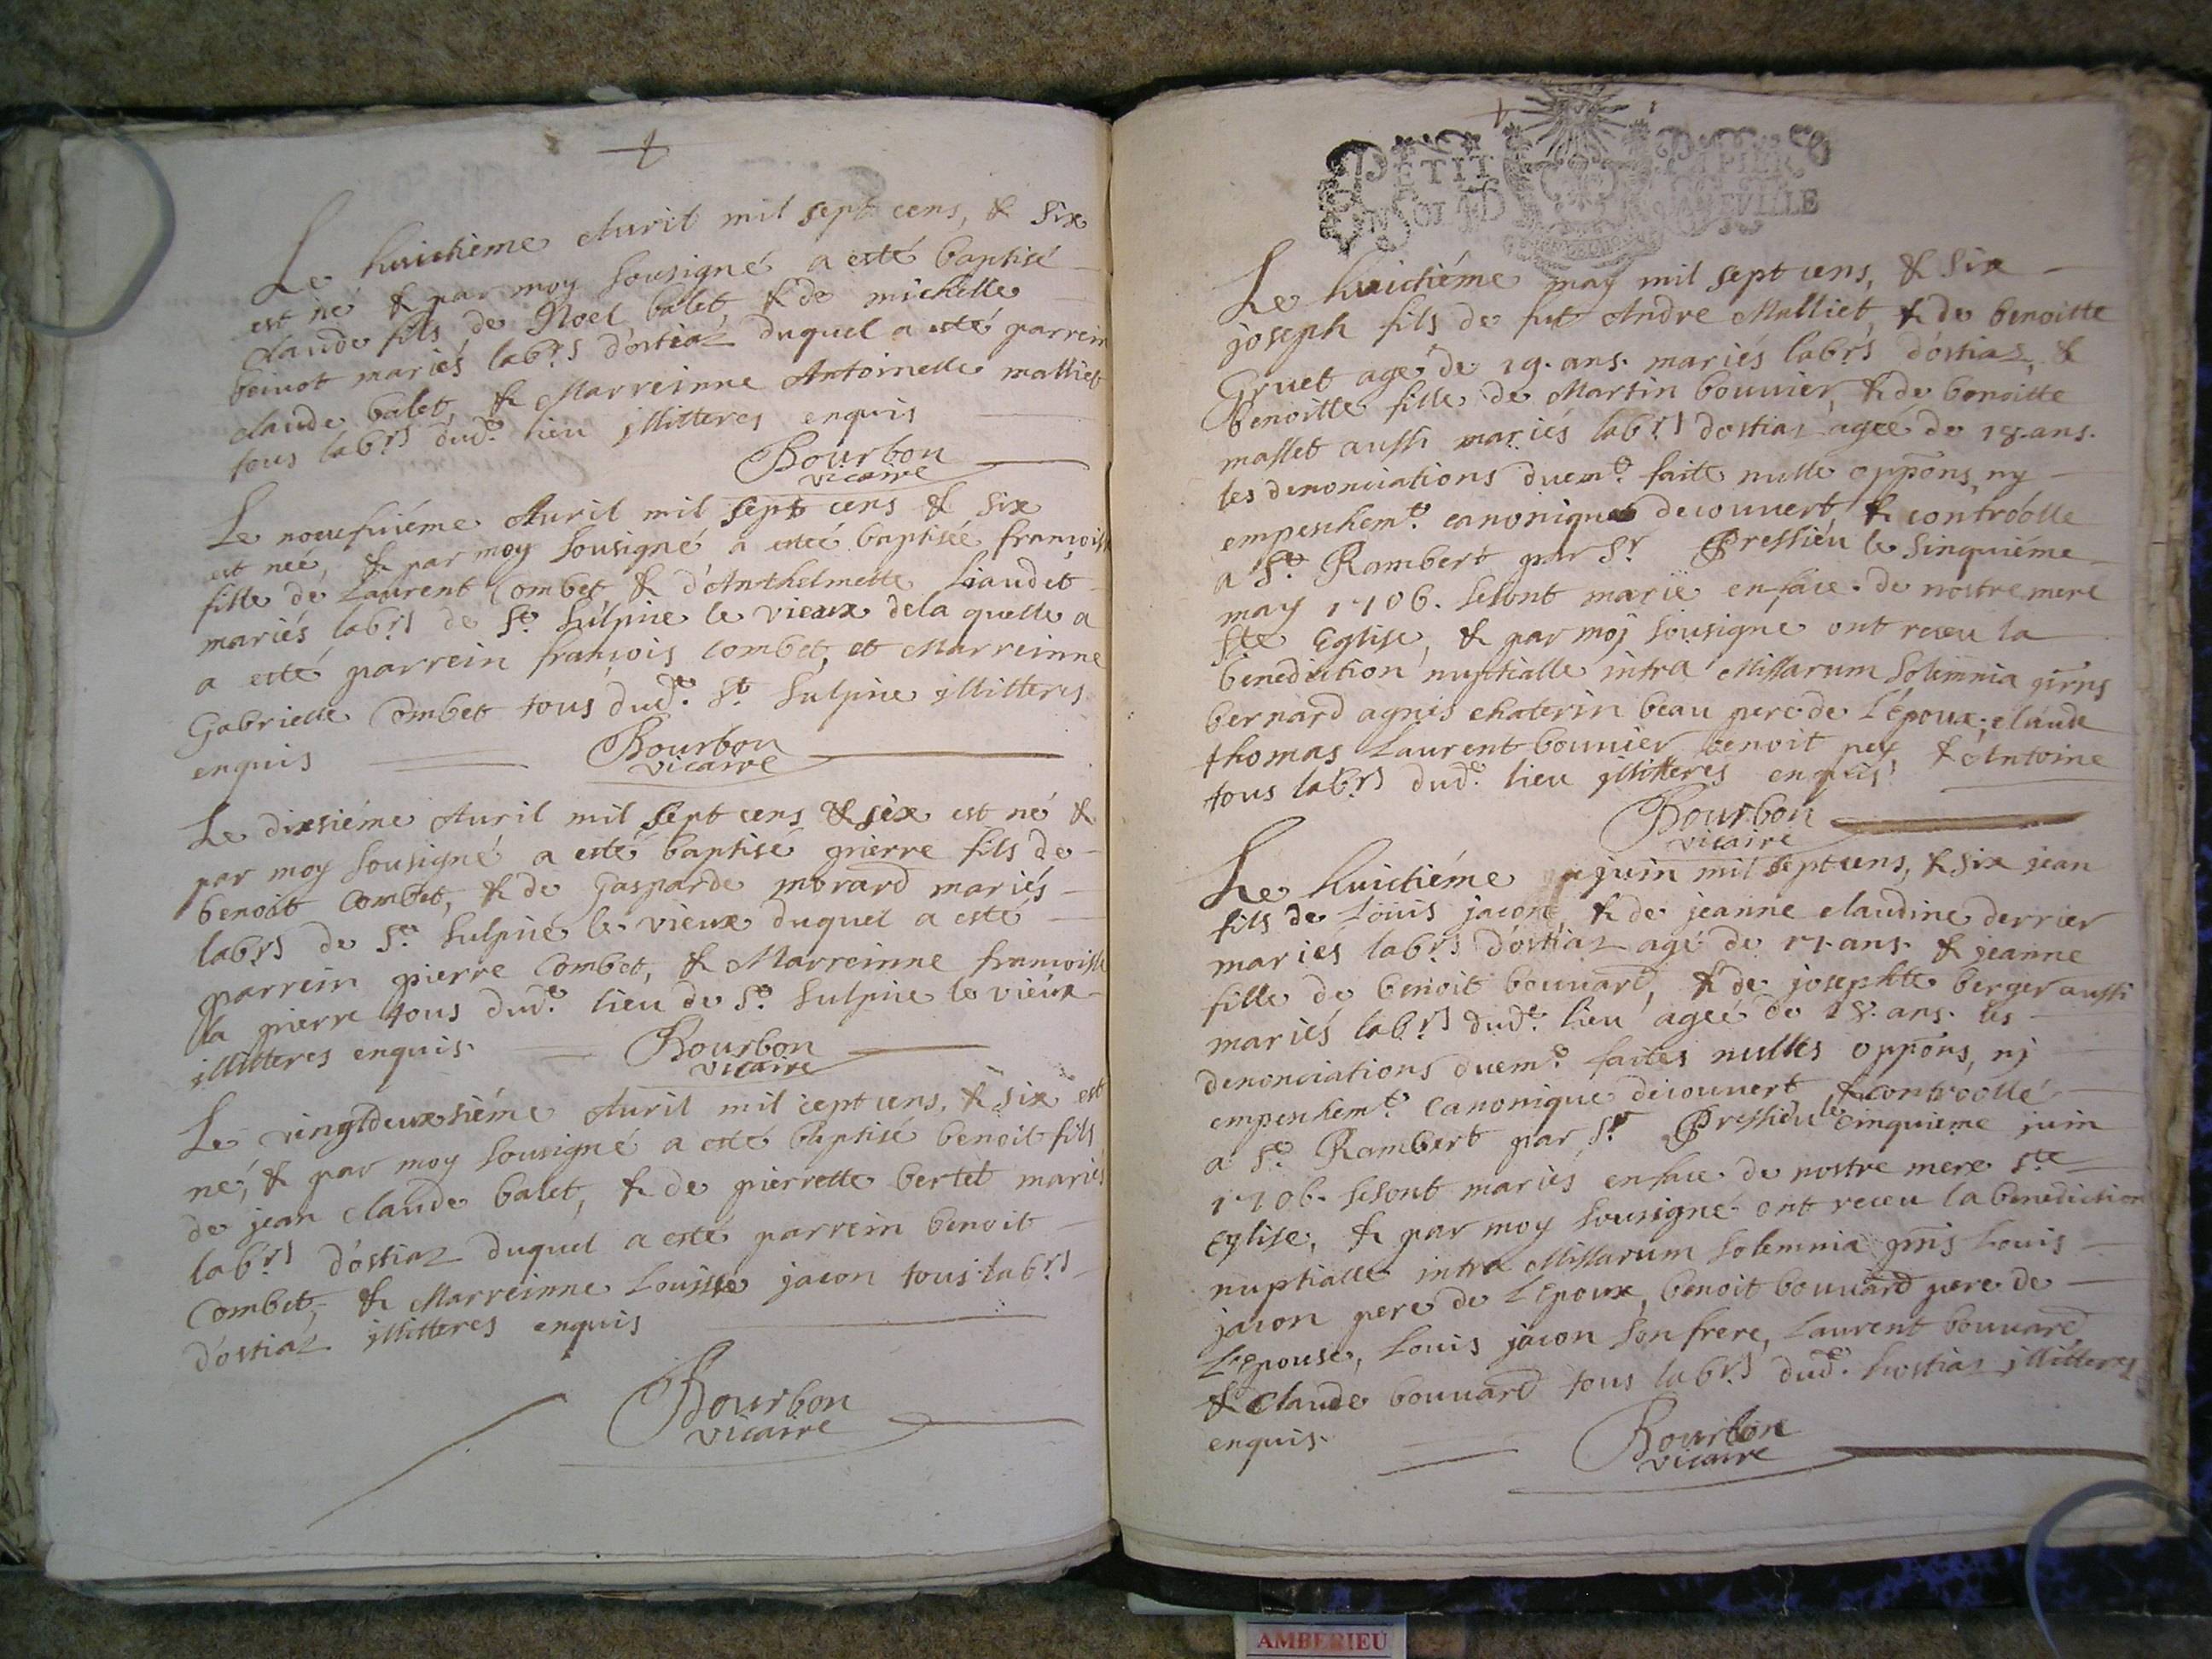 Le huictième Auril mil sept cens, & six
est né & par moy sousigné a esté baptisé
claude fils de Noel balet, & de michelle
beinot mariés lab.rs d'ostiaz duquel a esté parrein
claude balet, & Marreinne Antoinelle malliet
tous lab.rs dud.e lieu illitteres enquis
Bourbon
vicaire
Le noeufuiéme Auril mil sept cens & six
est née, & par moy sousigné a esteé baptiseé francoise
fille de Laurent Combet & d'Anthelmette Liaudet
mariés lab.rs de S.t Sulpice le vieux dela quelle a
a esté parrein françois Combet, et Marreinne
Gabrielle Combet tous dud.e S.t Sulpice illitteres
enquis
Bourbon
vicaire
Le dixsiéme Auril mil sept cens & six est né &
par moy sousigné a esté baptisé pierre fils de
benoit Combet, & de Gasparde morard mariés
lab.rs de S.t Sulpice le vieux duquel a esté
parrein pierre Combet, & Marreinne francoise
la pierre tous dud.e lieu de S.t Sulpice le vieux
illitteres enquis.
Bourbon
vicaire
Le vingtdeuxsiéme Auril mil cept cens, & six est
né, & par moy sousigné a esté baptisé benoit fils
de jean claude balet, & de pierrette bertet mariés
lab.rs d'ostiaz duquel a esté parrein benoit
Combet, & Marreinne Louisse jacon tous lab.rs
d'ostiaz illitteres enquis
Bourbon
vicaire
PETIT PAPIER
UN SOL LA FEVILLE
Le huictiéme may mil sept cens, & six
joseph fils de fut Andre Malliet, & de benoitte
Gruet agé de 19. ans. mariés lab.rs d'ostiaz, &
benoitte fille de Martin bouuier, & de benoitte
masset aussi mariés lab.rs dostiaz ageé de 18. ans.
les denonciations duem.t faite nulle oppōns, ny
empeschem.t canonique decouuert, & contróolle
a S.t Rambert par S.r Pressieu le Sinquiéme
may 1706. se sont marié en face de nostre mere
Ste Eglise, & par moj sousigné ont receu la
benediction nuptialle intra Missarum Solemnia
bernard agnés chaterin beau pere de L'Epoux, claude
thomas Laurent bouuier benoit pey & Antoine
tous lab.rs dud.e lieu illitteres enquis
Bourbon
vicaire
Le huictiéme juin mil sept cens, & six jean
fils de Loüis jacon, & de jeanne claudine derrier
mariés lab.rs d'ostiaz agé de 17. ans. & jeanne
fille de benoit bouuard, & de josephte berger aussi
mariés lab.rs dud.e lieu ageé de 18. ans. les
denonciations duem.t faites nulles oppōns, nj
empeschem.t Canonique decouuert, & controollé
a S.t Rambert par S.r Pressieu le cinquieme juin
1706. se sont mariés en face de nostre mere S.te
Eglise, & par moy sousigné ont receu la benediction
nuptialle intra Missarum Solemnia Louis
jacon pere de L'Epoux, benoit bouuard pere de
L'epouse, Louis jacon son frere, Laurent bouuard,
& Claude bouuard tous lab.rs dud.e hostiaz illitteres
enquis.
Bourbon
vicaire
AMBERIEU